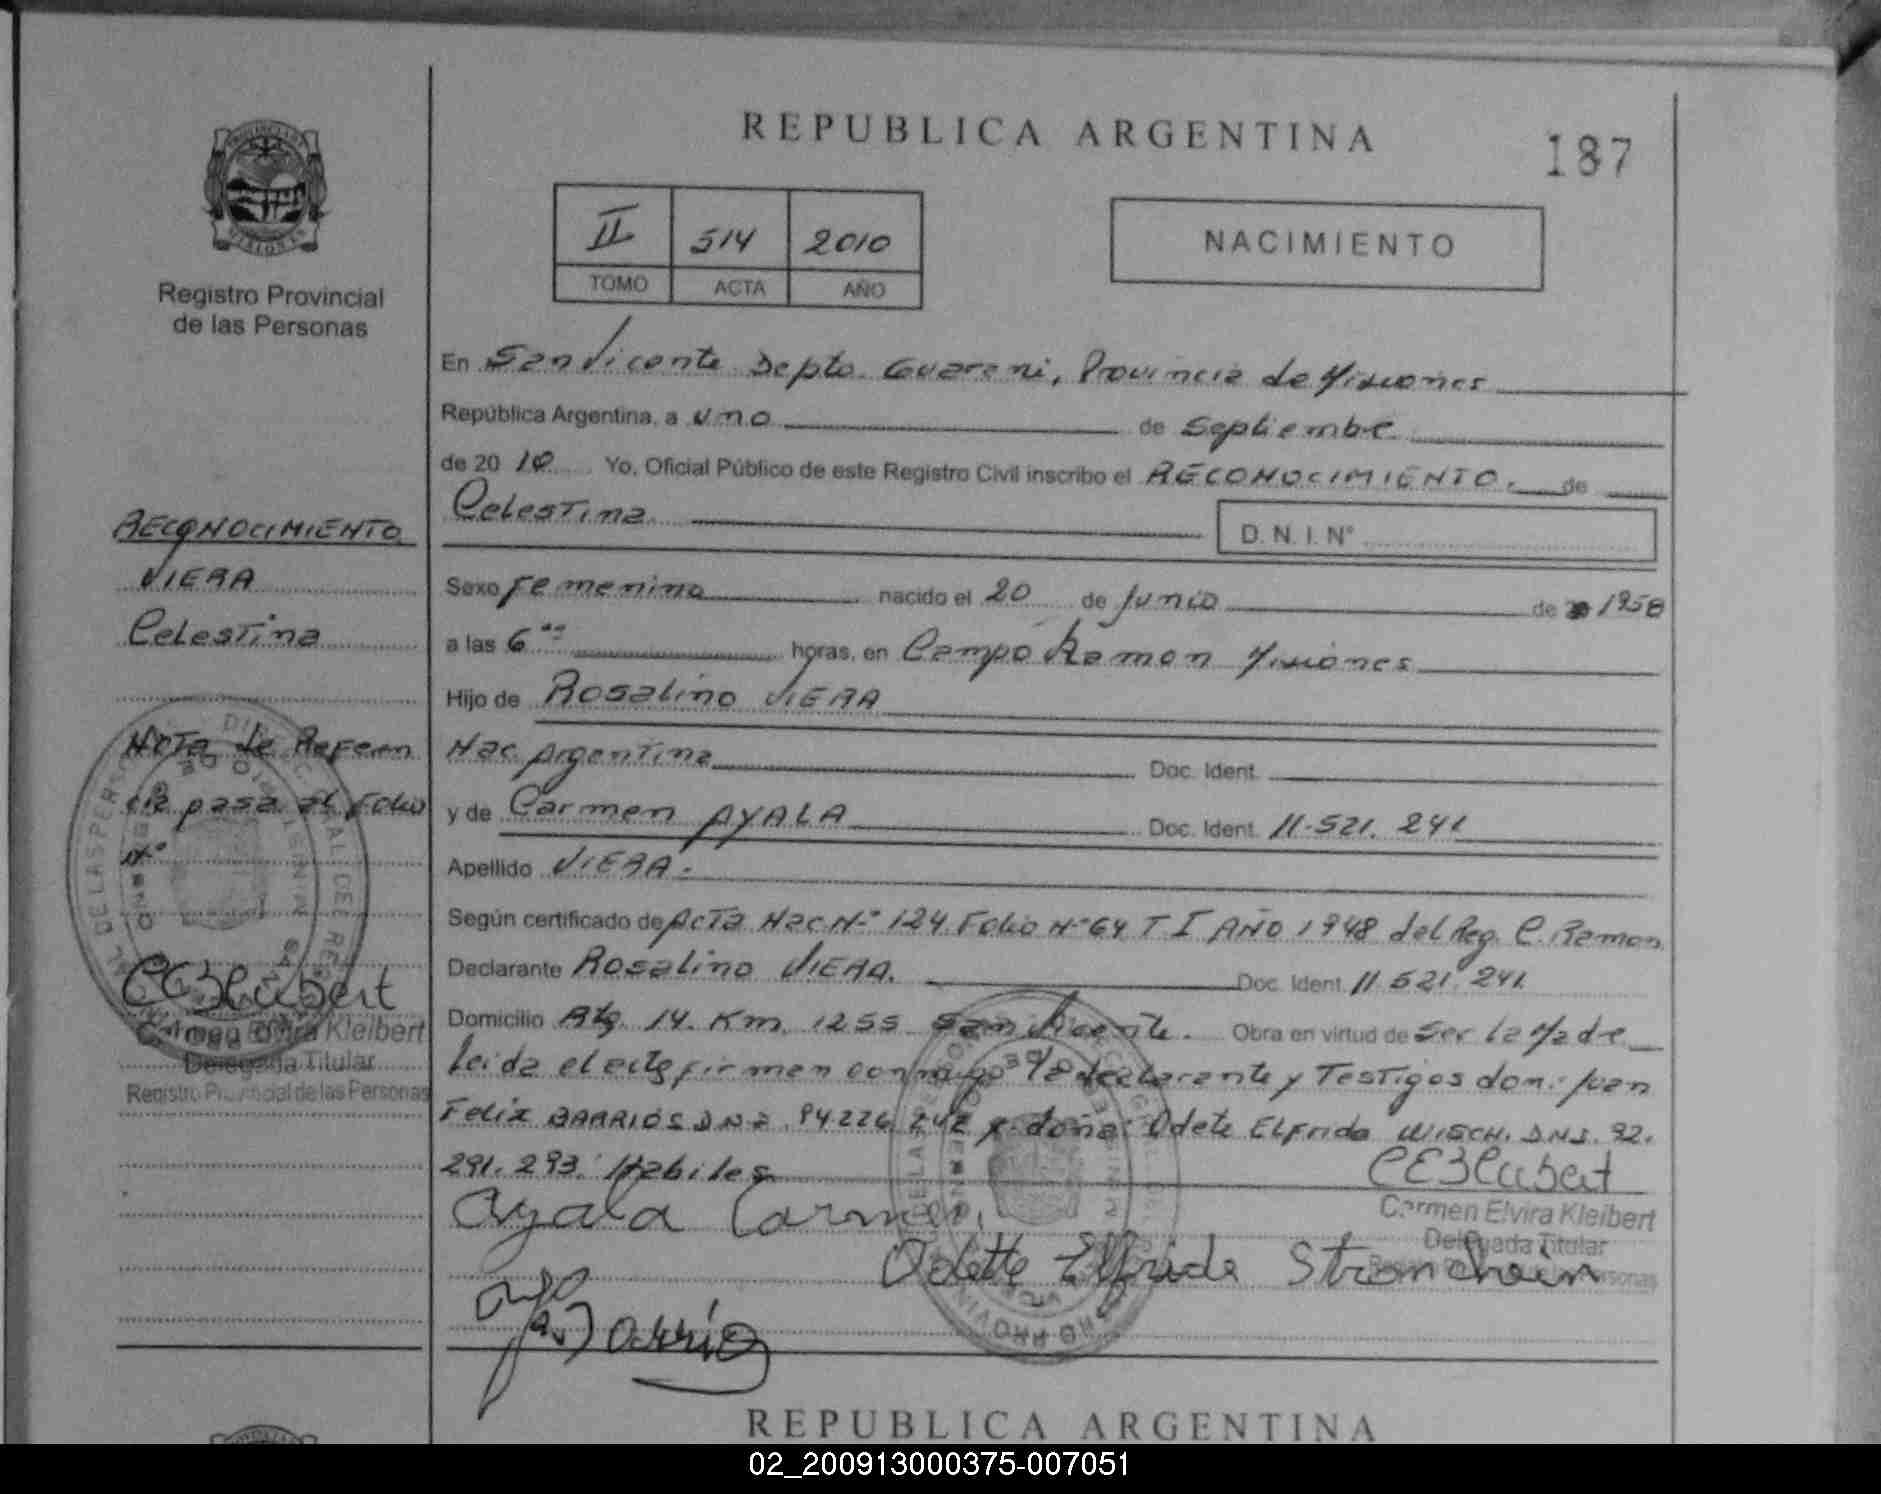 REPUBLICA ARGENTINA
187
II 514 2010
TOMO ACTA AÑO
NACIMIENTO
Registro Provincial
de las Personas
En San Vicente Depto. Guarani, Provincia de Misiones
República Argentina, a uno de Septiembre
de 2010 Yo, Oficial Público de este Registro Civil inscribo el RECONOCIMIENTO. de
Celestina
D. N. I. N°
Sexo Femenino nacido el 20 de Junio de 1958
a las 6 horas, en Campo Ramon Misiones
Hijo de Rosalino VIERA
Nac. Argentina Doc. Ident.
y de Carmen AYALA Doc. Ident. 11.521.241
Apellido VIERA.
Según certificado de Acta Nac N° 124 Folio N° 64 T I AÑO 1948 del Reg. C. Ramon
Declarante Rosalino VIERA. Doc. Ident. 11.521.241
Domicilio Rta. 14. Km. 1255 San Vicente. Obra en virtud de Ser la Madre
Leida el acta firman conmigo la declarante y Testigos don: Juan
Felix BARRIOS DNI. 94226 242 y doña: Odete Elfrida WISCH. DNI. 92.
291.293. Habiles
Ayala Carmen
CEKleibert
Carmen Elvira Kleibert
Delegada Titular
Odette Elfride
Barrio
RECONOCIMIENTO
VIERA
Celestina
Nota de Referen
cia pasa al Folio
N°
CEKleibert
Carmen Elvira Kleibert
Delegada Titular
Registro Provincial de las Personas
REPUBLICA ARGENTINA
02_200913000375-007051